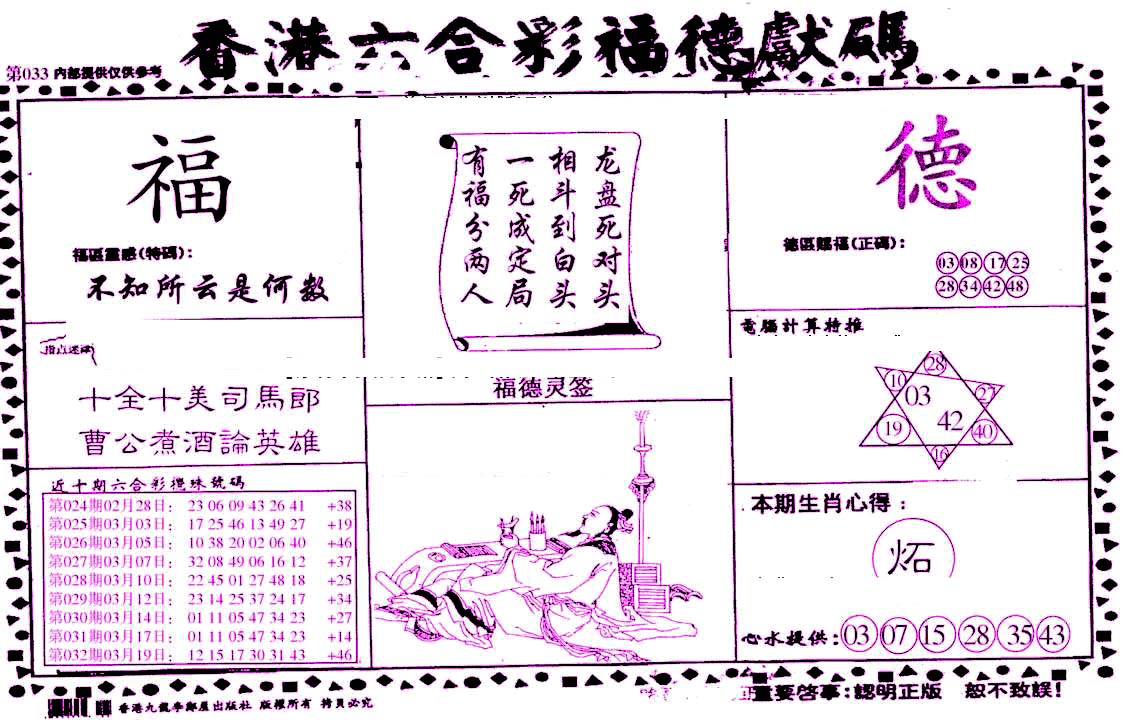 香港六合彩福德獻碼
第033 内部提供仅供参考
福
福區靈感(特碼):
不知所云是何数
指点迷津
十全十美司馬郎
曹公煮酒論英雄
近十期六合彩攪珠號碼
第024期02月28日: 23 06 09 43 26 41 +38
第025期03月03日: 17 25 46 13 49 27 +19
第026期03月05日: 10 38 20 02 06 40 +46
第027期03月07日: 32 08 49 06 16 12 +37
第028期03月10日: 22 45 01 27 48 18 +25
第029期03月12日: 23 14 25 37 24 17 +34
第030期03月14日: 01 11 05 47 34 23 +27
第031期03月17日: 01 11 05 47 34 23 +14
第032期03月19日: 12 15 17 30 31 43 +46
龙盘死对头
相斗到白头
一死成定局
有福分两人
福德灵签
德
德區賜福(正碼):
03 08 17 25
28 34 42 48
電腦計算特推
28
10 03 27
19 42 40
16
本期生肖心得:
炻
心水提供: 03 07 15 28 35 43
重要啓事:認明正版 恕不致誤!
香港九龍李鄭屋出版社 版權所有 拷貝必究